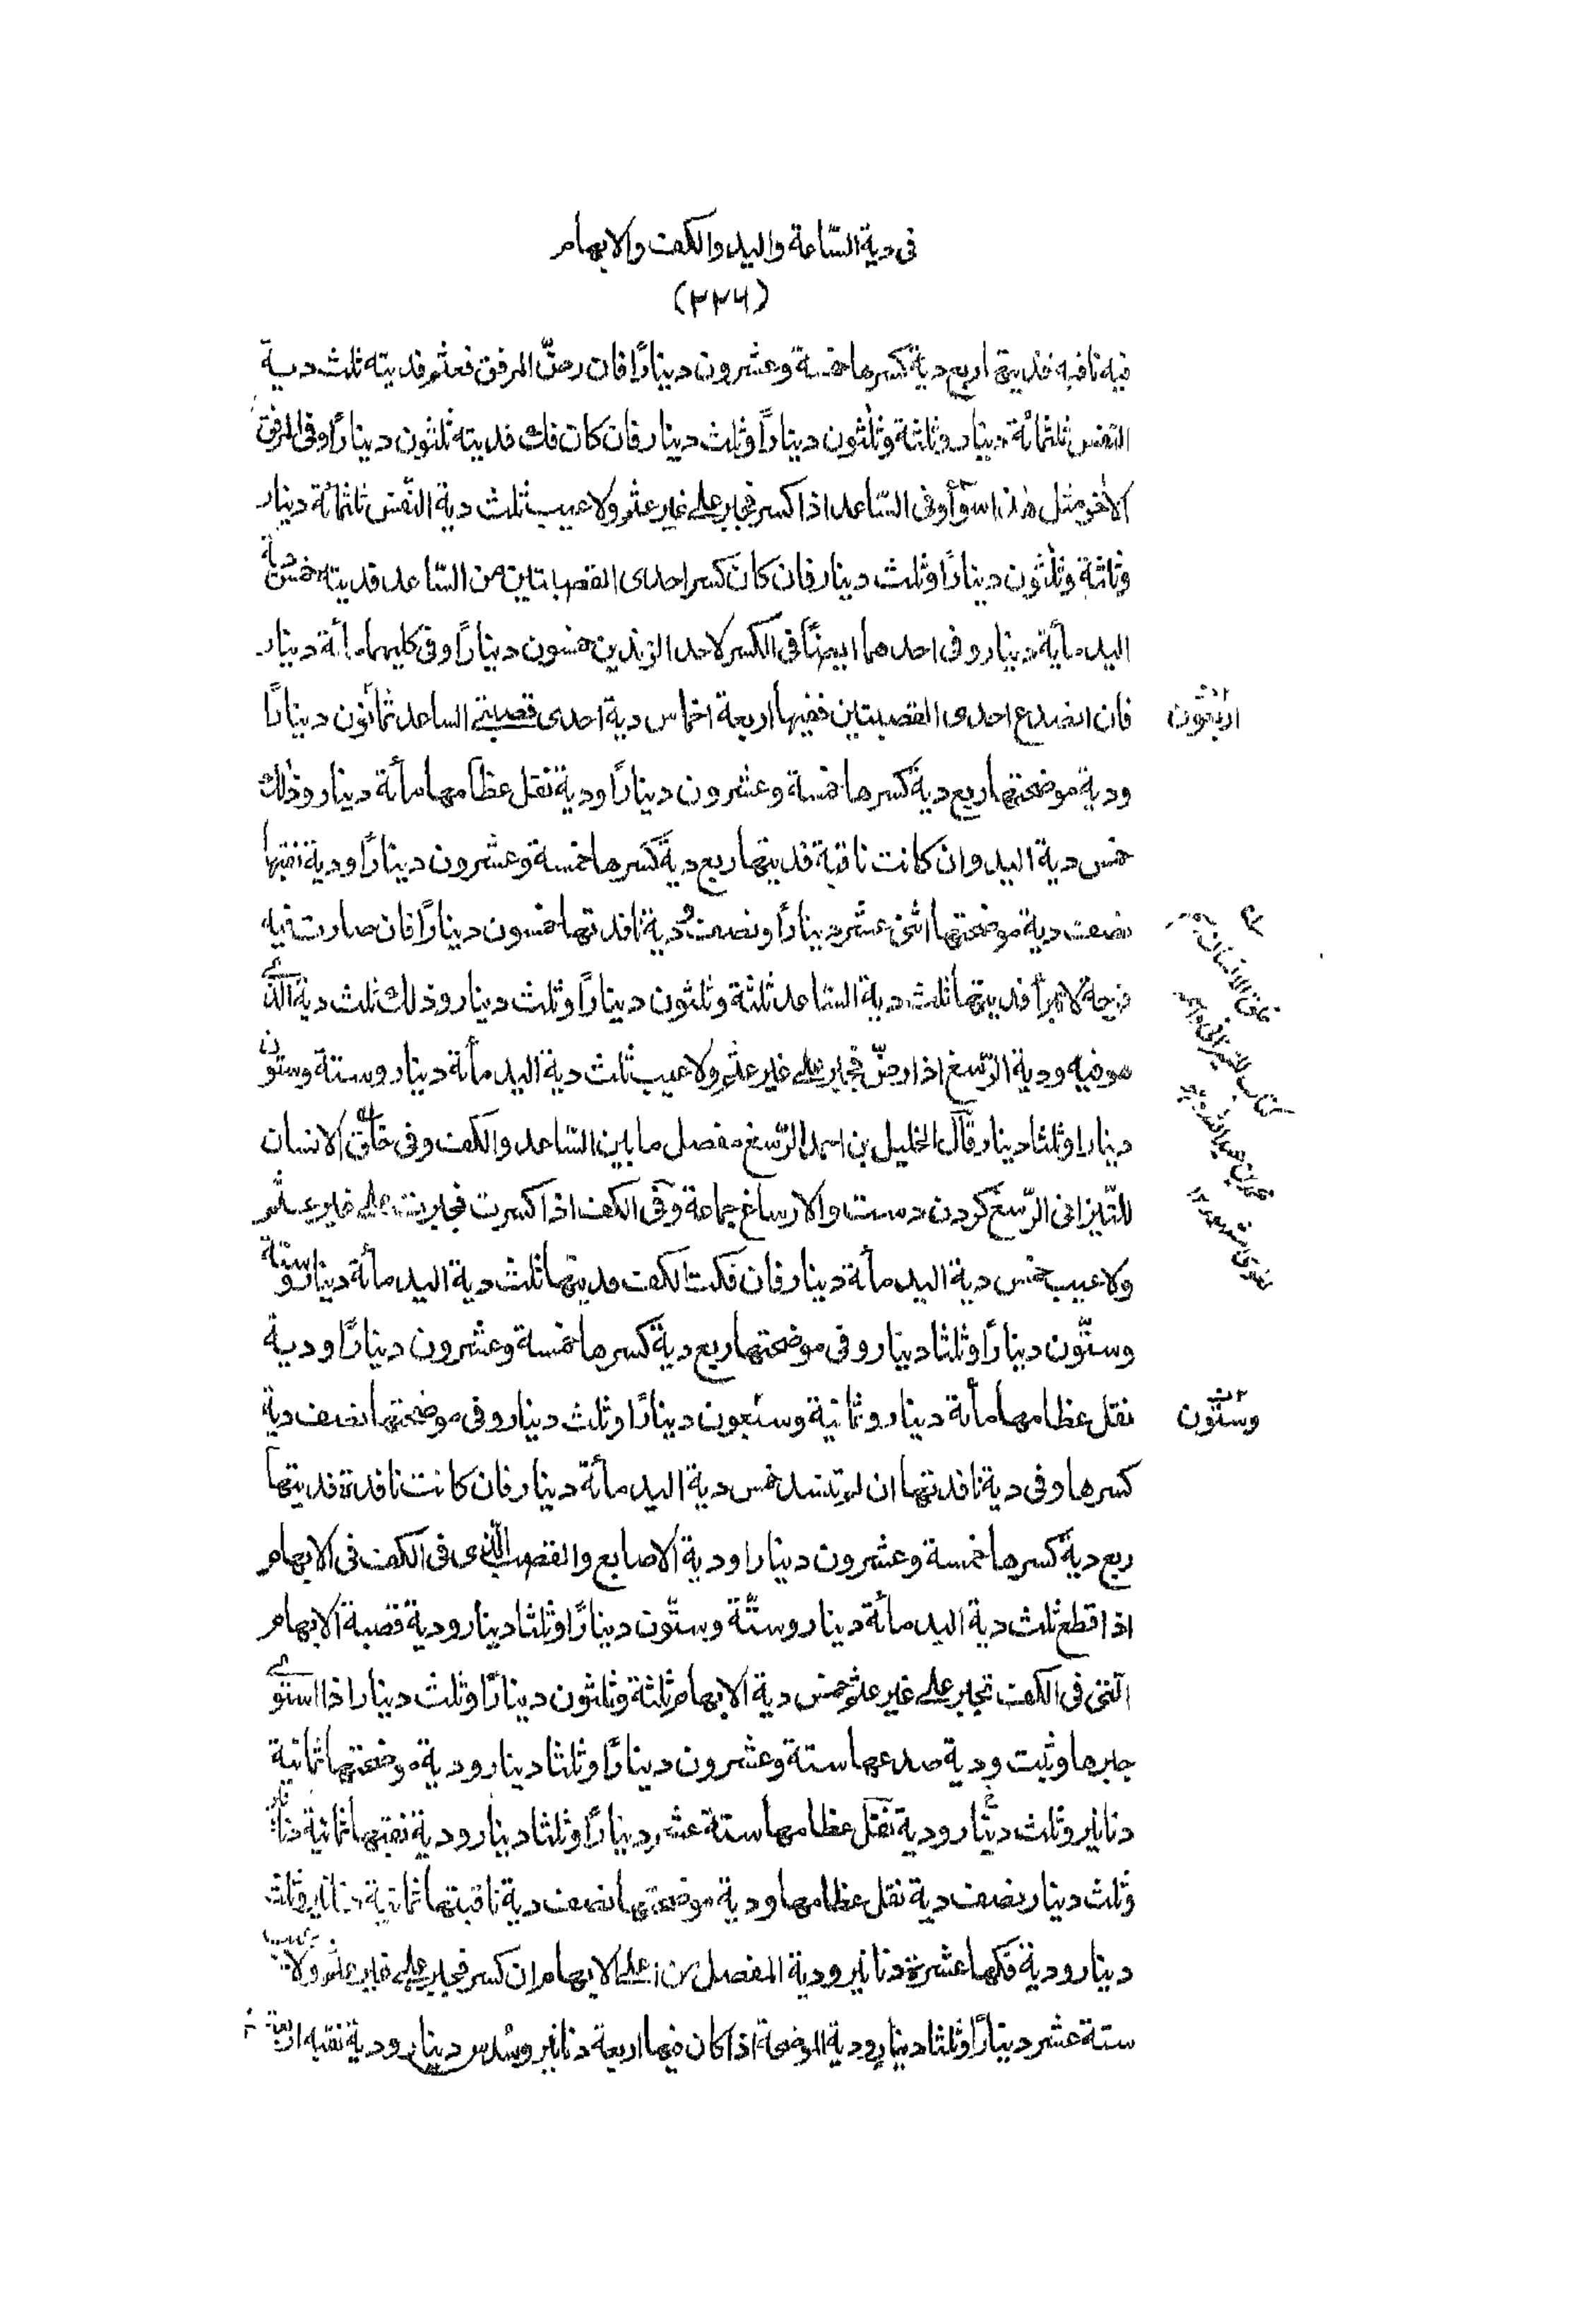 فى دية السّاعة واليد والكف والابهام
(٢٢٦)
فيه ناقبه فديتها ربع دية كسرها خمسة وعشرون دينارًا فان رضّ المرفق فعثم فديته ثلث دية
النفس ثلثمائة دينار وثلثة وثلثون دينارًا وثلث دينار فان كان فك فديته ثلثون دينارًا وفى المرفق
الاخر مثل هذا سوآ وفى السّاعد اذا كسر فجبر على غير عثم ولا عيب ثلث دية النّفس ثلثمائة دينار
وثلثة وثلثون دينارًا وثلث دينار فان كان كسر احدى القصبتين من السّاعد فديته خمس دية
اليد مأية دينار وفى احدهما ايضًا فى الكسر لاحد الزندين خمسون دينارًا وفى كليهما مأئة دينار
فان انصدع احدى القصبتين ففيها اربعة اخماس دية احدى قصبتى الساعد ثمانون دينارًا
اربعون
ودية موضحتها ربع دية كسرها خمسة وعشرون دينارًا ودية نقل عظامها مأئة دينار وذلك
خمس دية اليد وان كانت ناقبة فديتها ربع دية كسرها خمسة وعشرون دينارًا ودية نقبها
نصف دية موضحتها اثنى عشر دينارًا ونصف ودية نافذتها خمسون دينارًا فان صارت فيه
قرحة لا تبرأ فديتها ثلث دية السّاعد ثلثة وثلثون دينارًا وثلث دينار وذلك ثلث دية الذى
هو فيه ودية الرّسغ اذا رضّ فجبر على غير عثم ولا عيب ثلث دية اليد مأئة دينار وستة وستون
دينارا وثلثا دينار قال الخليل بن احمد الرّسغ مفصل ما بين السّاعد والكف وفى خلق الانسان
للنّيزانى الرّسغ كردن دست والارساغ جماعة وفى الكف اذا كسرت فجبرت على غير عثم
ولا عيب خمس دية اليد مأئة دينار فان فكت الكف فديتها ثلث دية اليد مأئة دينار وستة
وستّون دينارًا وثلثا دينار وفى موضحتها ربع دية كسرها خمسة وعشرون دينارًا ودية
نقل عظامها مأئة دينار وثمانية وسبعون دينارًا وثلث دينار وفى موضحتها نصف دية
وستّون
كسرها وفى دية نافذتها ان لم تنسد خمس دية اليد مأئة دينار فان كانت نافذة فديتها
ربع دية كسرها خمسة وعشرون دينارا ودية الاصابع والقصب الّذى فى الكف فى الابهام
اذا قطع ثلث دية اليد مأئة دينار وستّة وستّون دينارًا وثلثا دينار ودية قصبة الابهام
الّتى فى الكف تجبر على غير عثم خمس دية الابهام ثلثة وثلثون دينارًا وثلث دينار اذا استوى
جبرها وثبت ودية صدعها ستة وعشرون دينارًا وثلثا دينار ودية موضحتها ثمانية
دنانير وثلث دينار ودية نقل عظامها ستة عشر دينارًا وثلثا دينار ودية نقبها ثمانية دنانير
وثلث دينار نصف دية نقل عظامها ودية موضحتها نصف دية ناقبتها ثمانية دنانير وثلث
دينار ودية فكها عشرة دنانير ودية المفصل من اعلى الابهام ان كسر فجبر على غير عثم ولا عيب
ستة عشر دينارًا وثلثا دينار ودية الموضحة اذا كان فيها اربعة دنانير وسُدس دينار ودية نقبه اربعة